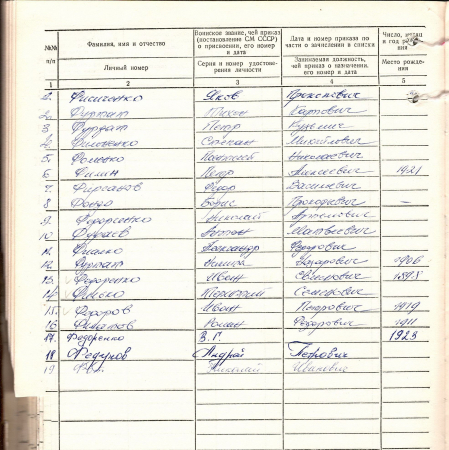 №№ п/п
Фамилия, имя и отчество
Воинское звание, чей приказ (постановление СМ СССР) о присвоении, его номер и дата
Дата и номер приказа по части о зачислении в списки
Число, месяц и год рождения
Личный номер
Серия и номер удостоверения личности
Занимаемая должность, чей приказ о назначении, его номер и дата
Место рождения
1 2 3 4 5
Яков Прокопович
2. Фурман Тихон Карпович
3. Фурдат Петр
4. Филоненко Степан Михайлович
5. Фоменко Николаевич
6. Филин Петр Алексеевич 1921
7. Фирсанов Федор Васильевич
8 Фонда Борис Прокофьевич
9. Федоренко Николай Артемович
10. Антон Матвеевич
11. Фиалко Александр Федорович
12. Фурман Никита Захарович 1906
13. Федоренко Иван 1898
14. Семенович
15. Федоров Иван Петрович 1919
16. Филатов Роман Федорович 1911
17. Федоренко В. Г. 1923
18 Федунов Андрей Петрович
19 Николай Иванович